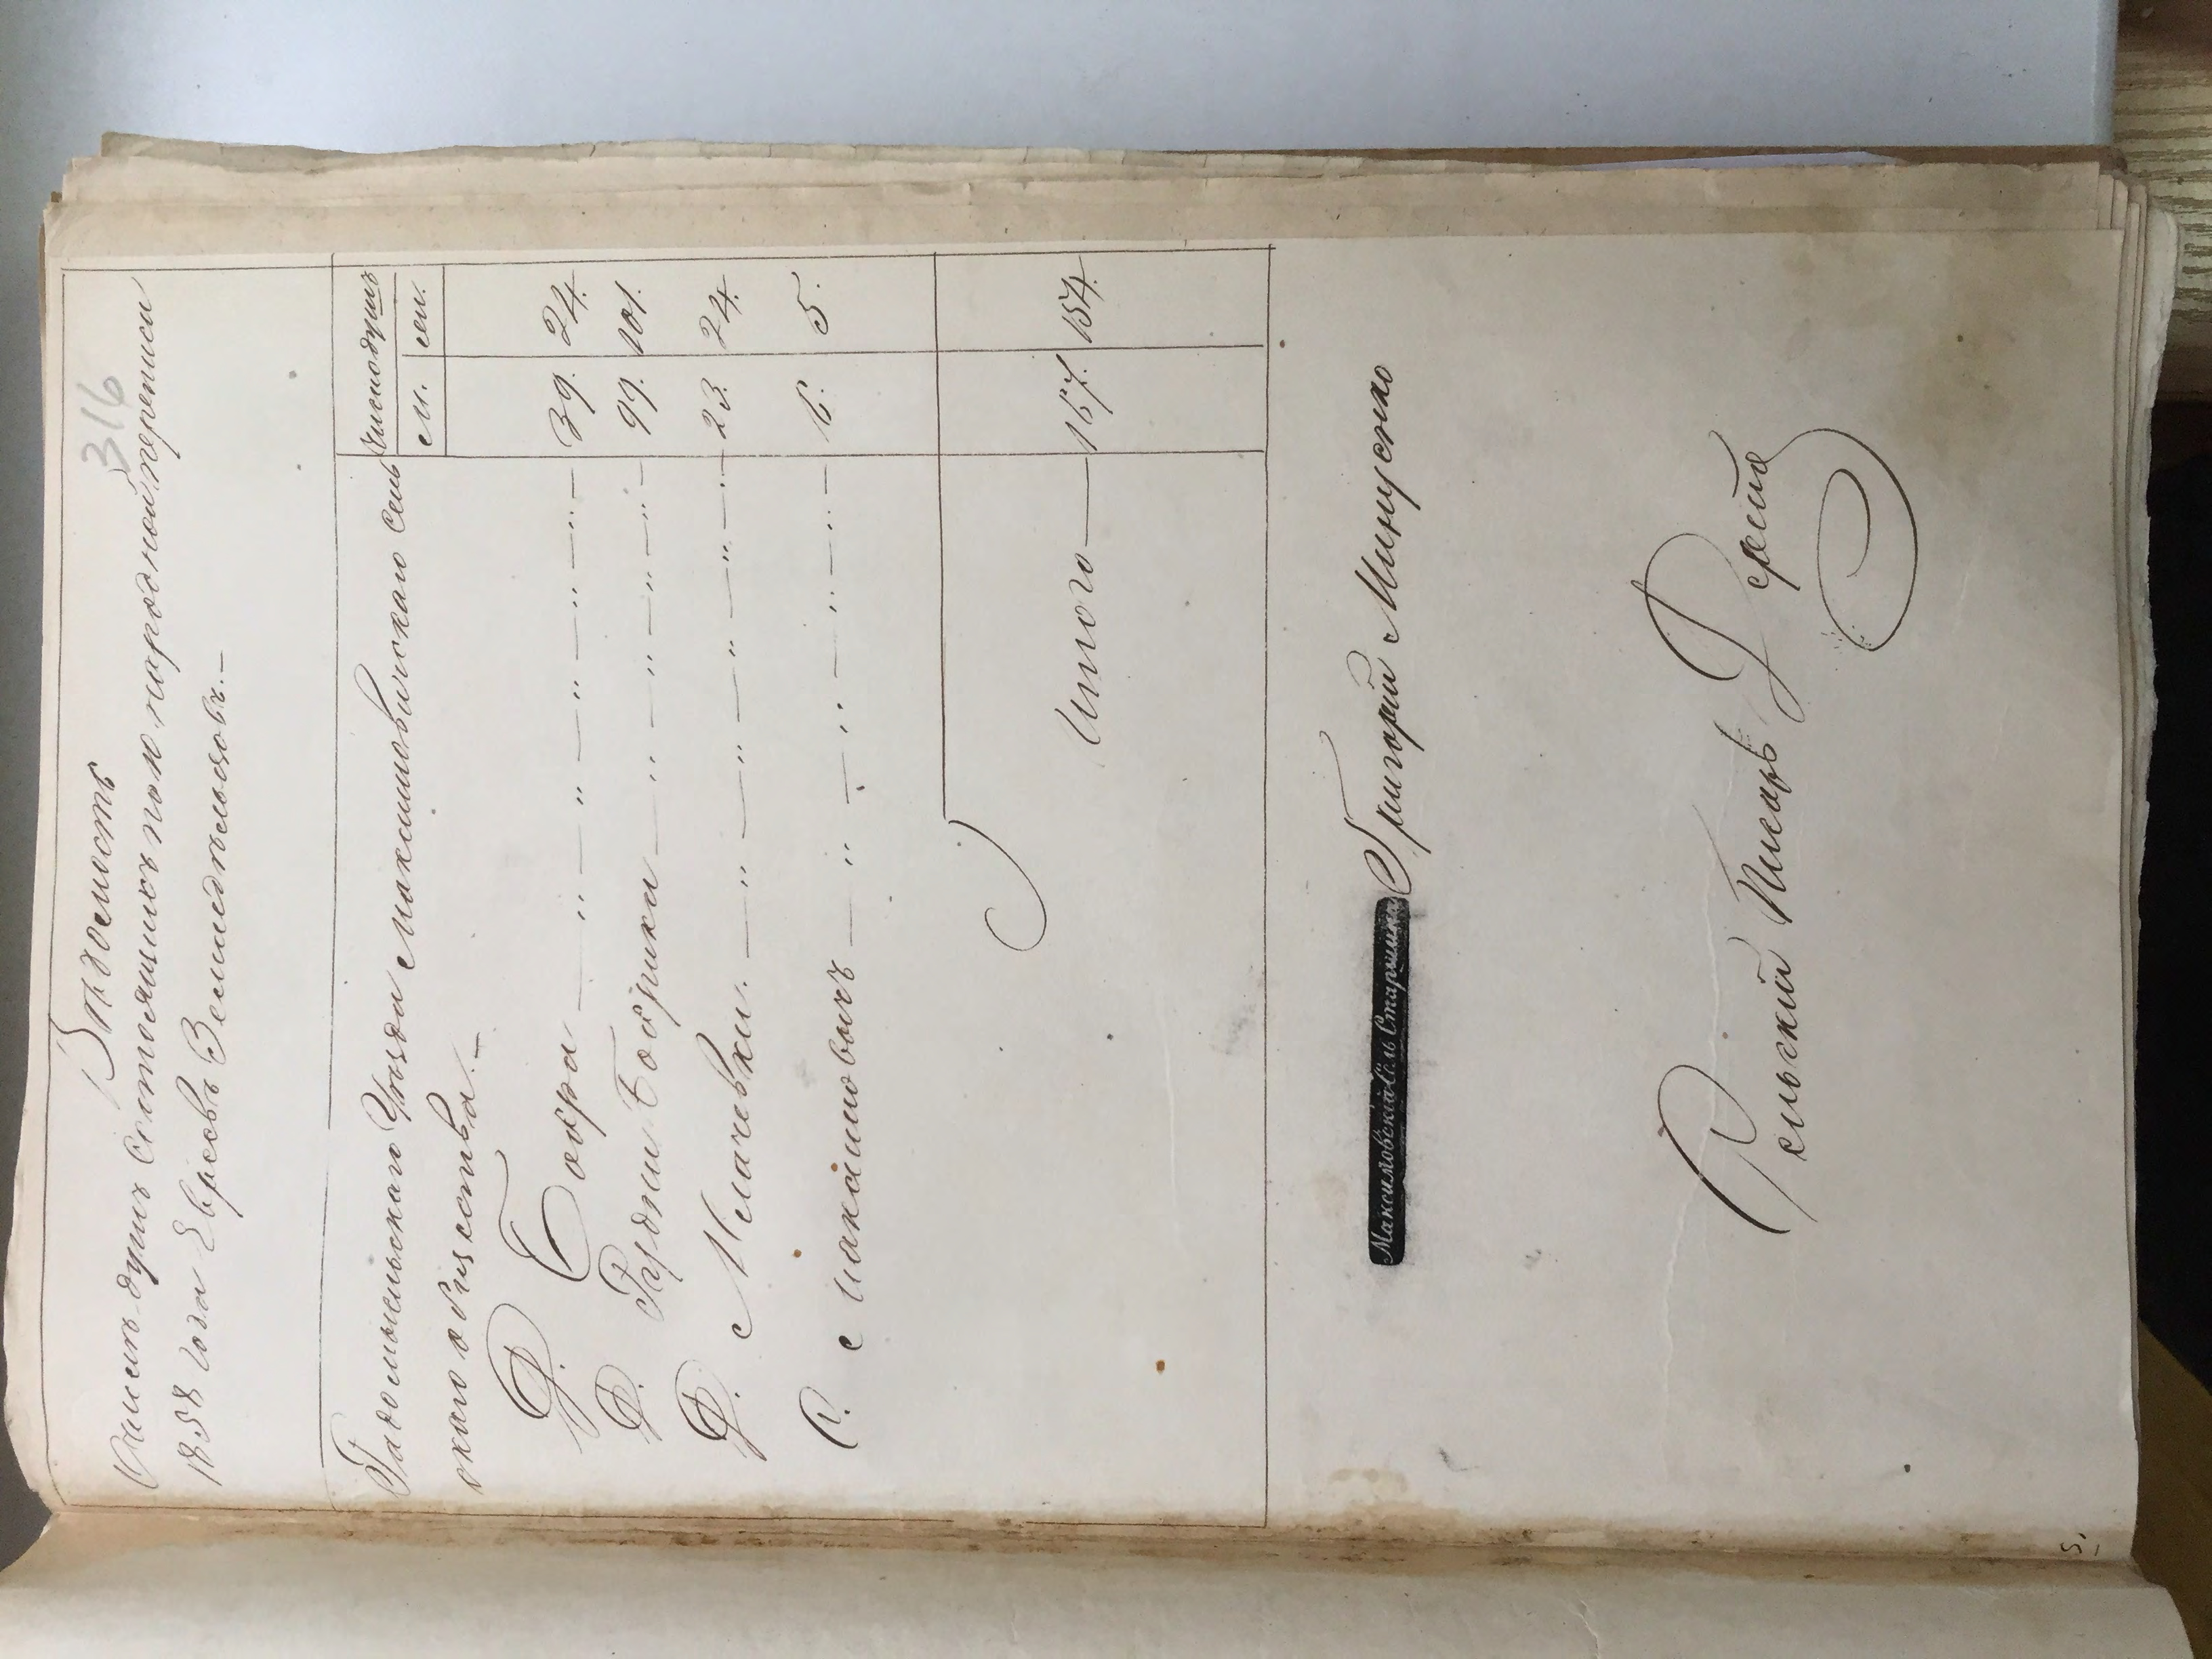 316
Вѣдомость
О числѣ душъ состоящихъ по народной переписи
1858 года Евреевъ Земледѣльцовъ.—
Радомысльскаго Уѣзда Максимовичскаго Сель
скаго общества.—
Число душъ
м. жен.
Д. Бобра — „ — „ — „ — „ — „ — 39. 24.
Д. Рудни Бобрики — „ — „ — „ — „ — 99. 101.
Д. Млачевки. — „ — „ — „ — „ — „ — 23. 24.
С. Максимовичъ — „ — „ — „ — „ — 6. 5.
Итого — 167. 154.
Максимовскій Сель Старшина Григорій Минуенко
Сельскій Писарь